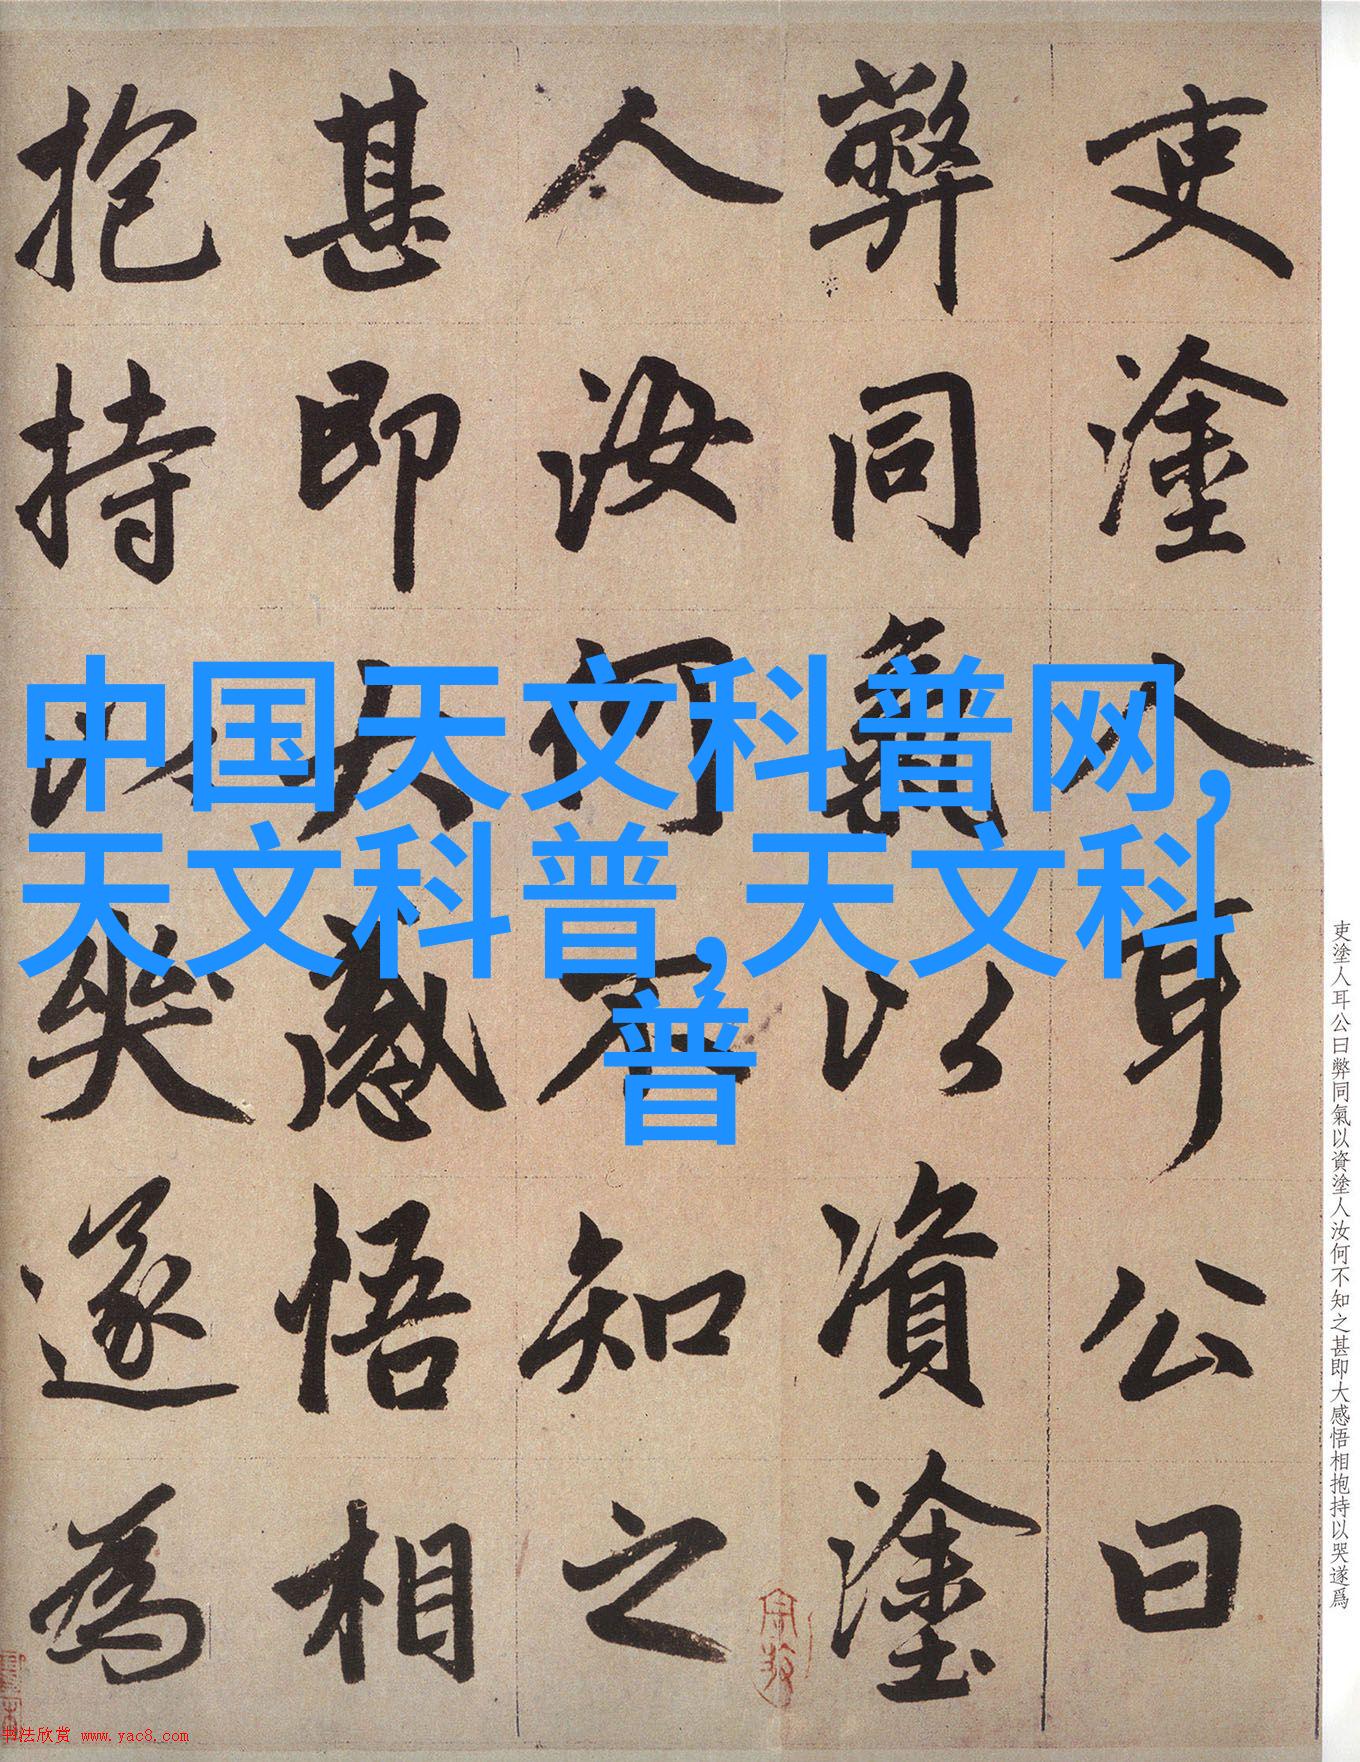 中国天文科普网,
天文科普,天文科
普
吏塗人耳公曰
弊同氣以資塗
人汝何不知之
甚即大感悟相
抱持以哭遂為
吏塗人耳公曰弊同氣以資塗人汝何不知之甚即大感悟相抱持以哭遂爲
书法欣赏 www.yac8.com